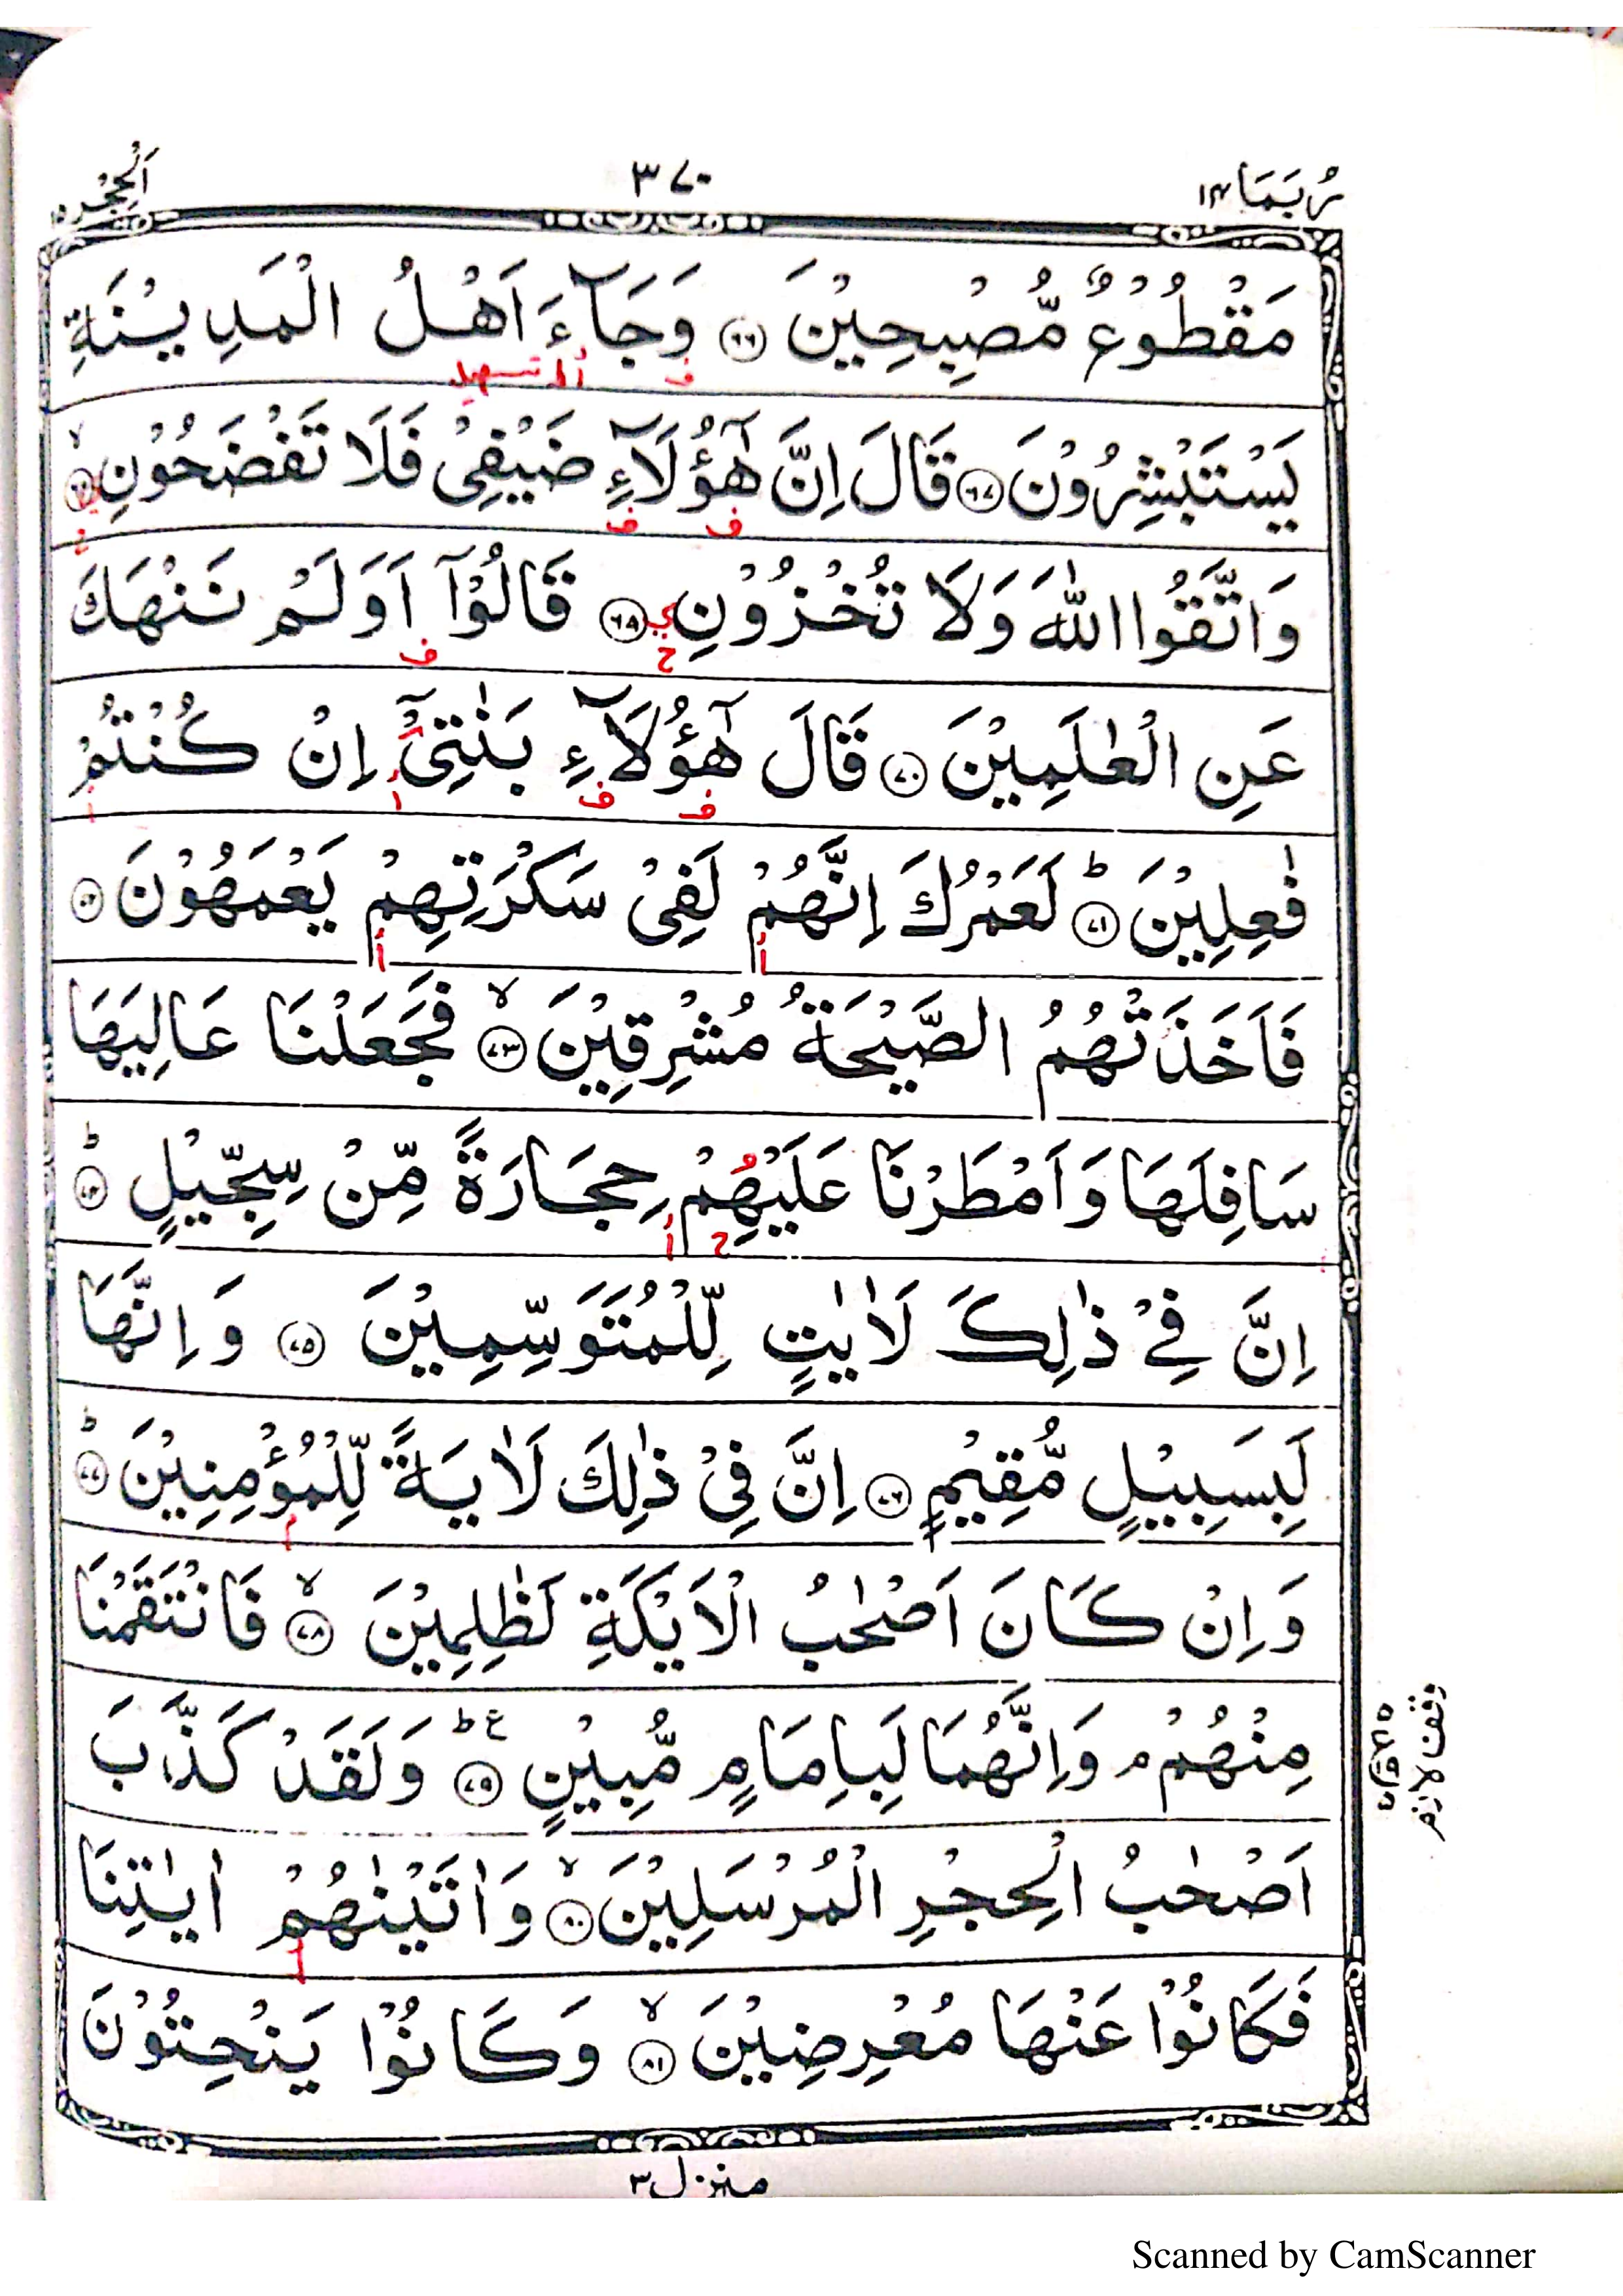 رُبَمَا ١٤
٣٧٠
اَلْحِجْر ١٥
مَقْطُوْعٌ مُّصْبِحِيْنَ ﴿٦٦﴾ وَجَآءَ اَهْلُ الْمَدِيْنَةِ
يَسْتَبْشِرُوْنَ ﴿٦٧﴾ قَالَ اِنَّ هٰٓؤُلَآءِ ضَيْفِيْ فَلَا تَفْضَحُوْنِ ﴿٦٨﴾ۙ
وَاتَّقُوا اللّٰهَ وَلَا تُخْزُوْنِ ﴿٦٩﴾ قَالُوْٓا اَوَلَمْ نَنْهَكَ
عَنِ الْعٰلَمِيْنَ ﴿٧٠﴾ قَالَ هٰٓؤُلَآءِ بَنٰتِيْٓ اِنْ كُنْتُمْ
فٰعِلِيْنَ ﴿٧١﴾ؕ لَعَمْرُكَ اِنَّهُمْ لَفِيْ سَكْرَتِهِمْ يَعْمَهُوْنَ ﴿٧٢﴾
فَاَخَذَتْهُمُ الصَّيْحَةُ مُشْرِقِيْنَ ﴿٧٣﴾ۙ فَجَعَلْنَا عَالِيَهَا
سَافِلَهَا وَاَمْطَرْنَا عَلَيْهِمْ حِجَارَةً مِّنْ سِجِّيْلٍ ﴿٧٤﴾ؕ
اِنَّ فِيْ ذٰلِكَ لَاٰيٰتٍ لِّلْمُتَوَسِّمِيْنَ ﴿٧٥﴾ وَاِنَّهَا
لَبِسَبِيْلٍ مُّقِيْمٍ ﴿٧٦﴾ اِنَّ فِيْ ذٰلِكَ لَاٰيَةً لِّلْمُؤْمِنِيْنَ ﴿٧٧﴾ؕ
وَاِنْ كَانَ اَصْحٰبُ الْاَيْكَةِ لَظٰلِمِيْنَ ﴿٧٨﴾ۙ فَانْتَقَمْنَا
مِنْهُمْ ۘ وَاِنَّهُمَا لَبِاِمَامٍ مُّبِيْنٍ ﴿٧٩﴾ؕ ع وَلَقَدْ كَذَّبَ
اَصْحٰبُ الْحِجْرِ الْمُرْسَلِيْنَ ﴿٨٠﴾ۙ وَاٰتَيْنٰهُمْ اٰيٰتِنَا
فَكَانُوْا عَنْهَا مُعْرِضِيْنَ ﴿٨١﴾ۙ وَكَانُوْا يَنْحِتُوْنَ
وقف لازم
منزل ٣
Scanned by CamScanner